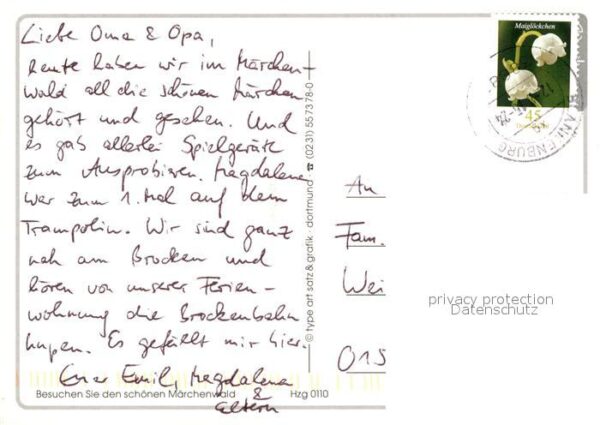 Liebe Oma & Opa,
heute haben wir im Märchen-
wald all die schönen Märchen
gehört und gesehen. Und
es gab allerlei Spielgeräte
zum Ausprobieren. Magdalena
war zum 1. Mal auf dem
Trampolin. Wir sind ganz
nah am Brocken und
hören von unserer Ferien-
wohnung die Brockenbahn
hupen. Es gefällt mir hier.
Euer Emil, Magdalena
&
Eltern
Besuchen Sie den schönen Märchenwald
Hzg 0110
© type art satz & grafik · dortmund · ☎ (0231) 557378-0
Maiglöckchen
45
Deutschland
BLANKENBURG
An
Fam.
Wei
015
privacy protection
Datenschutz